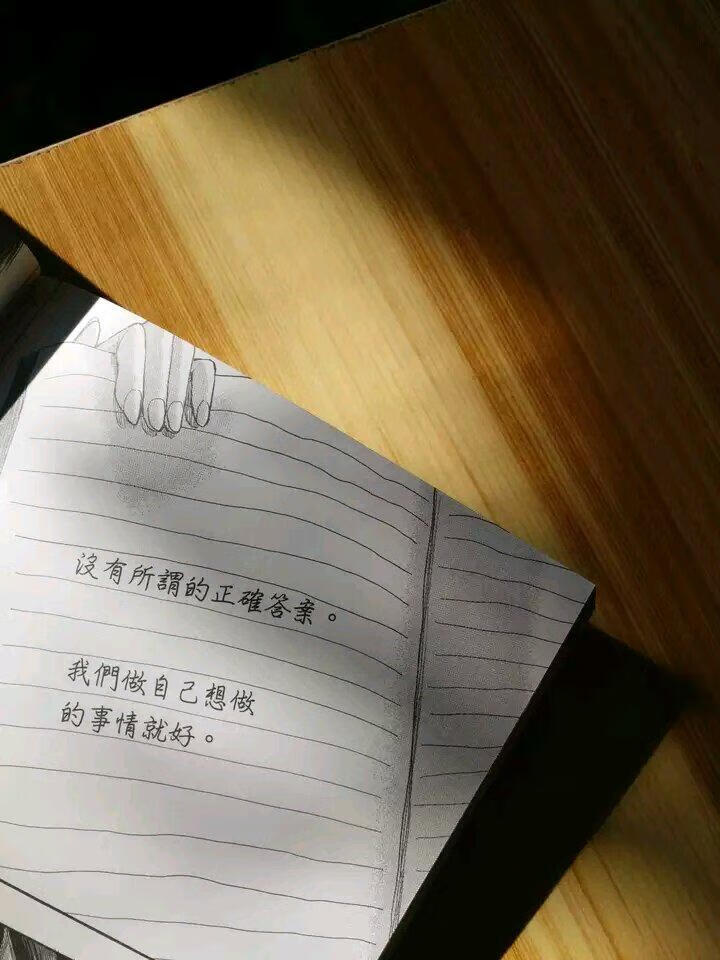 沒有所謂的正確答案。
我們做自己想做
的事情就好。